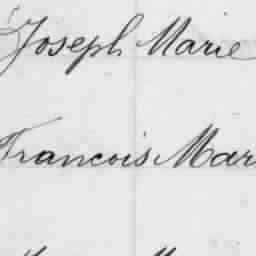 Joseph Marie
Francois Mar